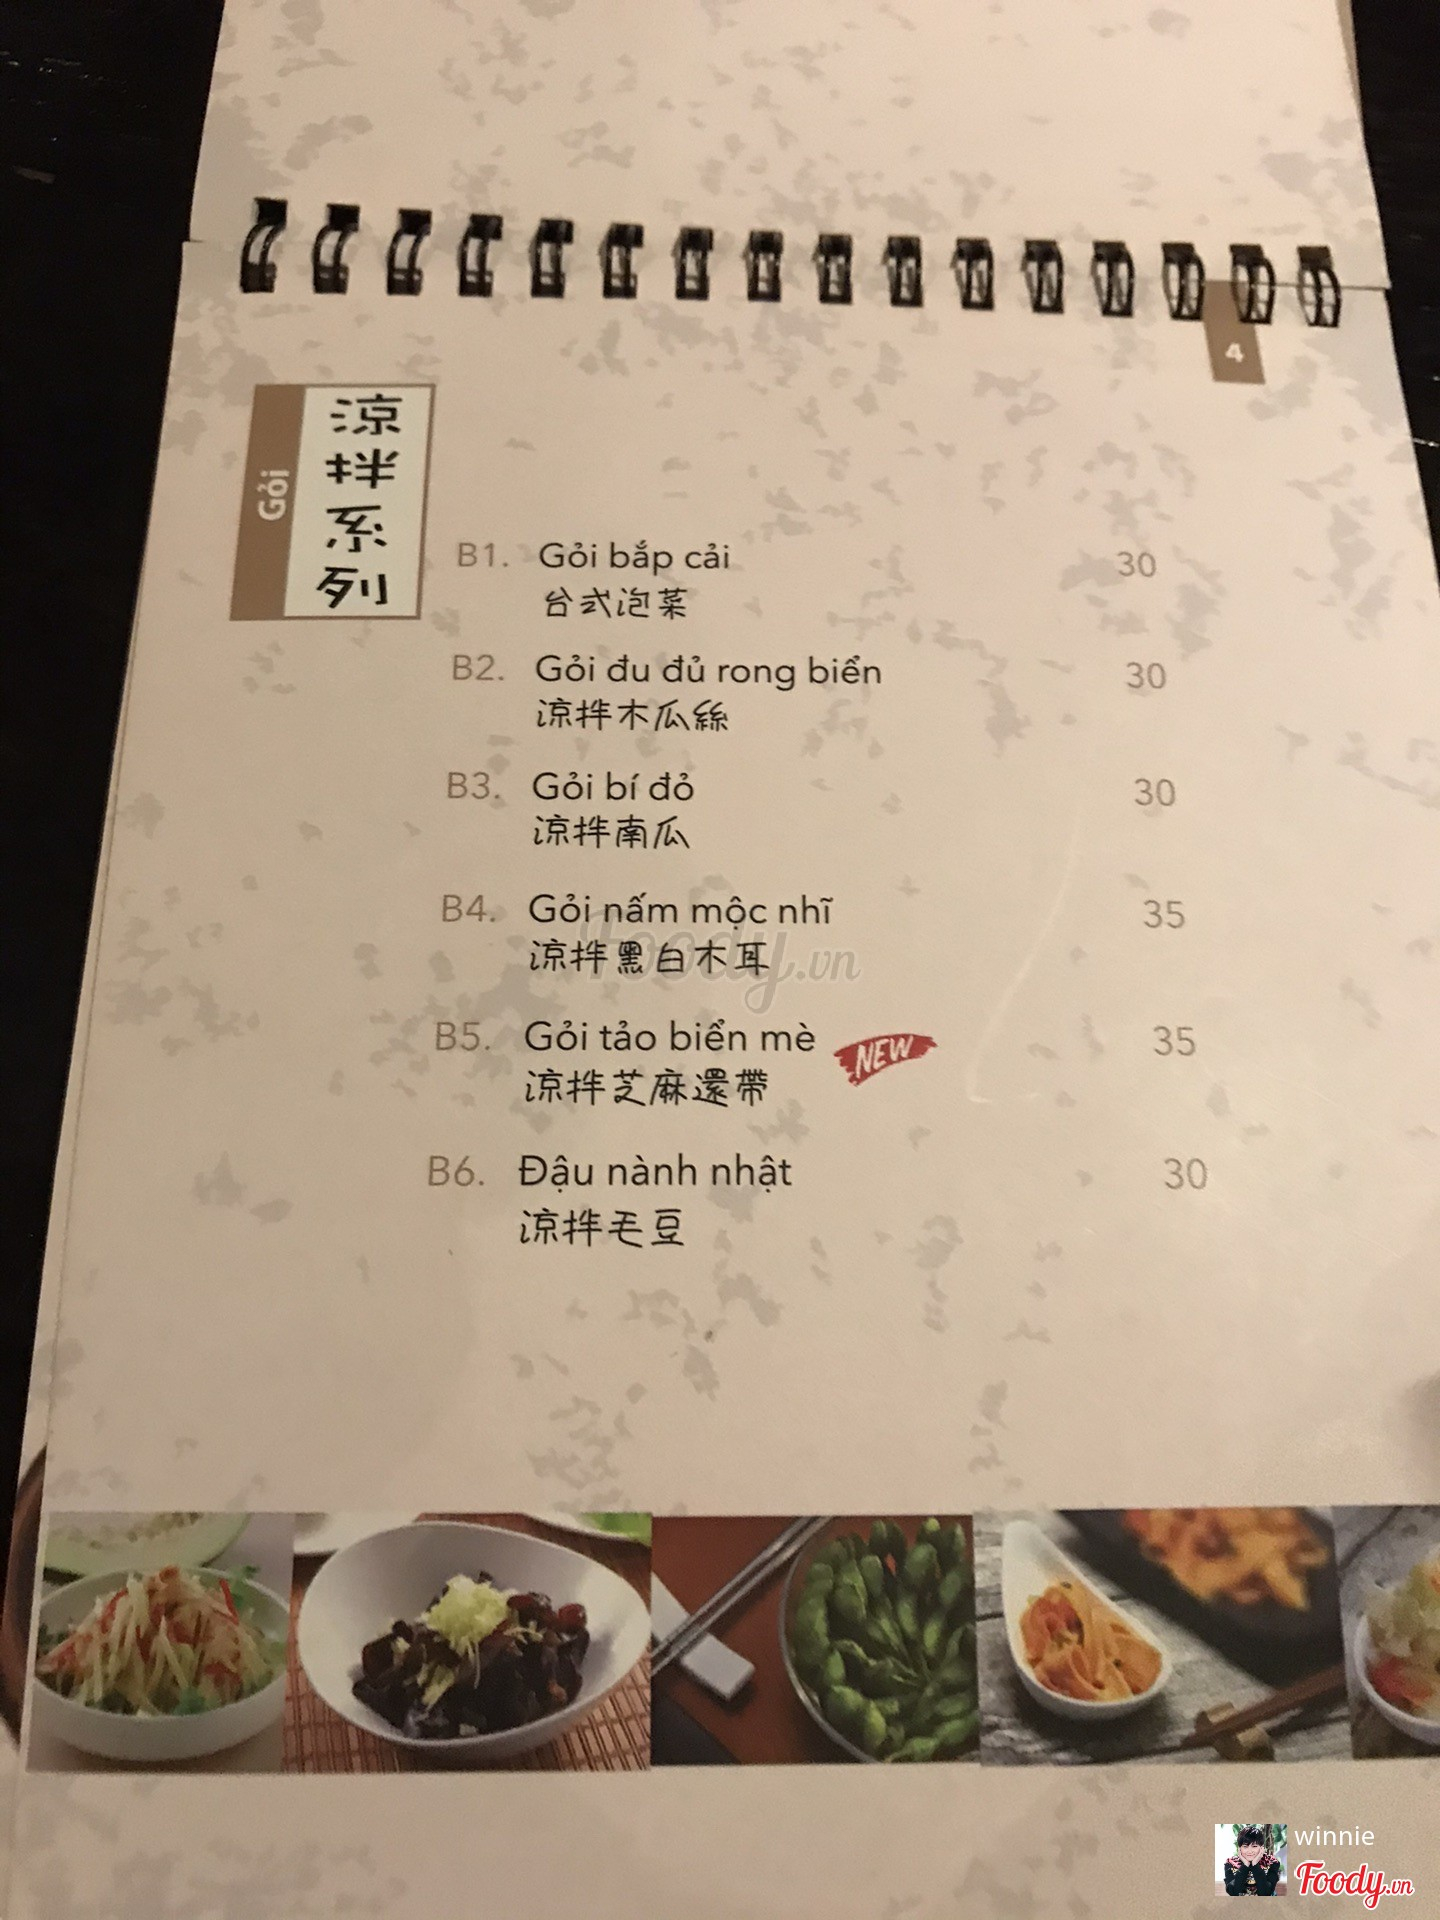 4
Gỏi
涼拌系列
B1. Gỏi bắp cải 30
台式泡菜
B2. Gỏi đu đủ rong biển 30
涼拌木瓜絲
B3. Gỏi bí đỏ 30
涼拌南瓜
B4. Gỏi nấm mộc nhĩ 35
涼拌黑白木耳
Foody.vn
B5. Gỏi tảo biển mè NEW 35
涼拌芝麻還帶
B6. Đậu nành nhật 30
涼拌毛豆
winnie
Foody.vn